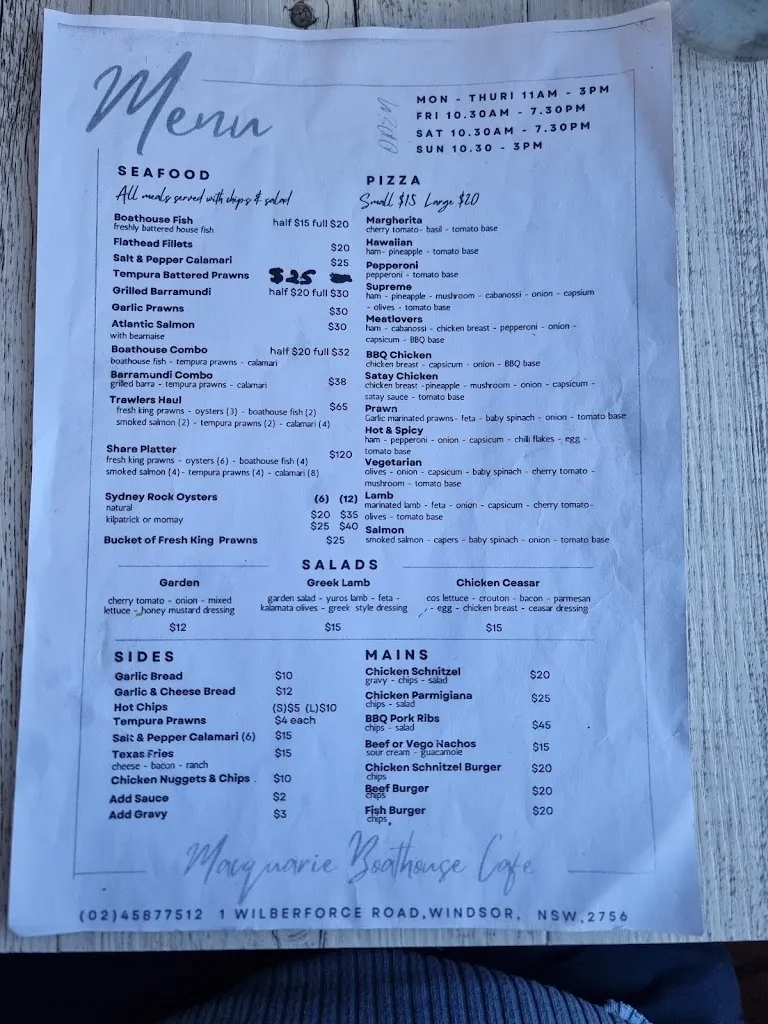 Menu
OPEN
MON - THURI 11AM - 3PM
FRI 10.30AM - 7.30PM
SAT 10.30AM - 7.30PM
SUN 10.30 - 3PM
SEAFOOD
All meals served with chips & salad
Boathouse Fish half $15 full $20
freshly battered house fish
Flathead Fillets $20
Salt & Pepper Calamari $25
Tempura Battered Prawns $25
Grilled Barramundi half $20 full $30
Garlic Prawns $30
Atlantic Salmon $30
with bearnaise
Boathouse Combo half $20 full $32
boathouse fish - tempura prawns - calamari
Barramundi Combo $38
grilled barra - tempura prawns - calamari
Trawlers Haul $65
fresh king prawns - oysters (3) - boathouse fish (2)
smoked salmon (2) - tempura prawns (2) - calamari (4)
Share Platter $120
fresh king prawns - oysters (6) - boathouse fish (4)
smoked salmon (4)- tempura prawns (4) - calamari (8)
Sydney Rock Oysters (6) (12)
natural $20 $35
kilpatrick or mornay $25 $40
Bucket of Fresh King Prawns $25
PIZZA
Small $15 Large $20
Margherita
cherry tomato- basil - tomato base
Hawaiian
ham- pineapple - tomato base
Pepperoni
pepperoni - tomato base
Supreme
ham - pineapple - mushroom - cabanossi - onion - capsium
- olives - tomato base
Meatlovers
ham - cabanossi - chicken breast - pepperoni - onion -
capsicum - BBQ base
BBQ Chicken
chicken breast - capsicum - onion - BBQ base
Satay Chicken
chicken breast -pineapple - mushroom - onion - capsicum -
satay sauce - tomato base
Prawn
Garlic marinated prawns- feta - baby spinach - onion - tomato base
Hot & Spicy
ham - pepperoni - onion - capsicum - chilli flakes - egg -
tomato base
Vegetarian
olives - onion - capsicum - baby spinach - cherry tomato -
mushroom - tomato base
Lamb
marinated lamb - feta - onion - capsicum - cherry tomato-
olives - tomato base
Salmon
smoked salmon - capers - baby spinach - onion - tomato base
SALADS
Garden
cherry tomato - onion - mixed
lettuce - honey mustard dressing
$12
Greek Lamb
garden salad - yuros lamb - feta -
kalamata olives - greek style dressing
$15
Chicken Ceasar
cos lettuce - crouton - bacon - parmesan
- egg - chicken breast - ceasar dressing
$15
SIDES
Garlic Bread $10
Garlic & Cheese Bread $12
Hot Chips (S)$5 (L)$10
Tempura Prawns $4 each
Salt & Pepper Calamari (6) $15
Texas Fries $15
cheese - bacon - ranch
Chicken Nuggets & Chips $10
Add Sauce $2
Add Gravy $3
MAINS
Chicken Schnitzel $20
gravy - chips - salad
Chicken Parmigiana $25
chips - salad
BBQ Pork Ribs $45
chips - salad
Beef or Vego Nachos $15
sour cream - guacamole
Chicken Schnitzel Burger $20
chips
Beef Burger $20
chips
Fish Burger $20
chips
Macquarie Boathouse Cafe
(02)45877512 1 WILBERFORCE ROAD,WINDSOR, NSW,2756